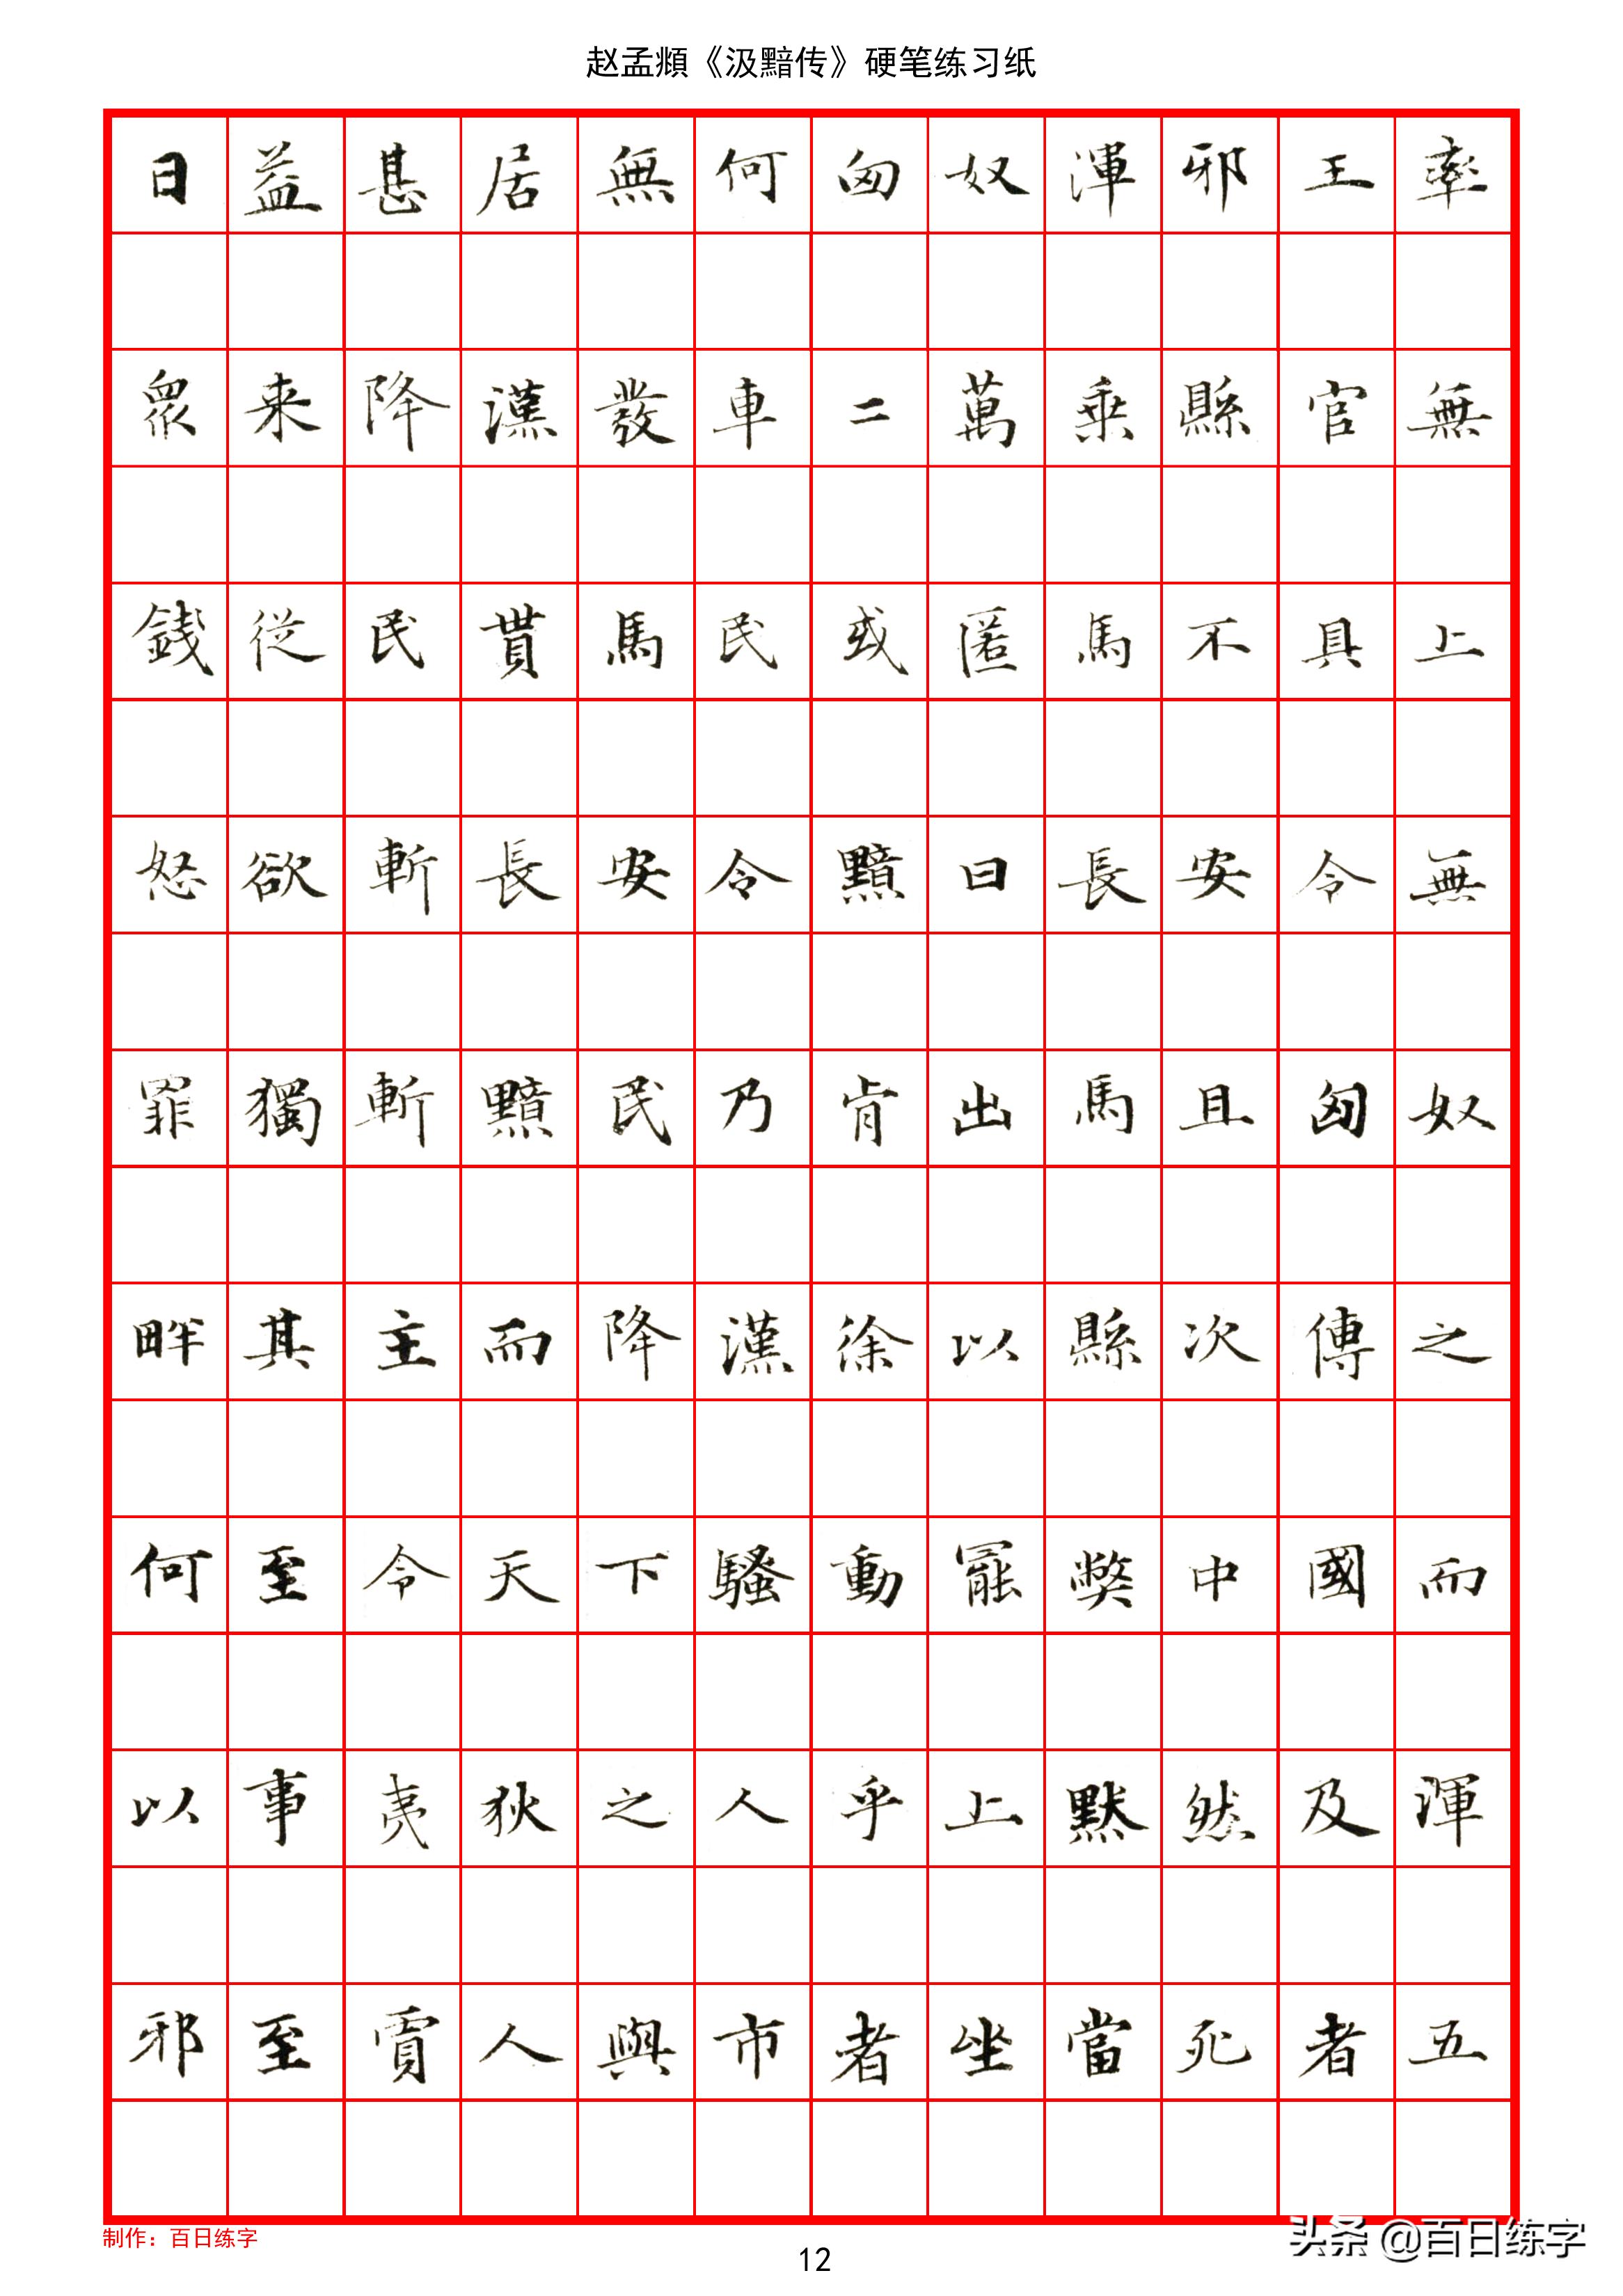 赵孟頫《汲黯传》硬笔练习纸
日益甚居無何匈奴渾邪王率
眾来降漢發車二萬乗縣官無
錢從民貰馬民或匿馬不具上
怒欲斬長安令黯曰長安令無
罪獨斬黯民乃肯出馬且匈奴
畔其主而降漢徐以縣次傳之
何至令天下騷動罷弊中國而
以事夷狄之人乎上黙然及渾
邪至賈人與市者坐當死者五
制作：百日练字
12
头条 @百日练字